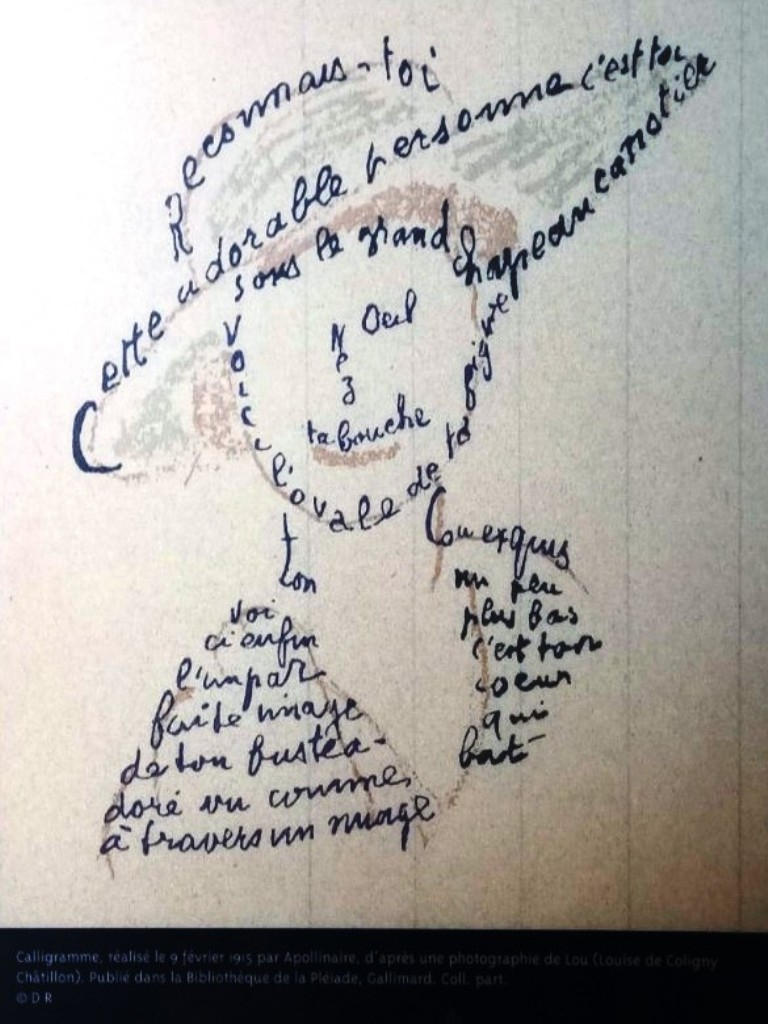 Reconnais-toi
Cette adorable personne c'est toi
sous le grand chapeau canotier
Oeil
Nez
ta bouche
Voici l'ovale de ta figure
ton
Cou exquis
voi
ci enfin
l'impar
faite image
de ton buste a-
doré vu comme
à travers un nuage
un peu
plus bas
c'est ton
coeur
qui
bat
Calligramme, réalisé le 9 février 1915 par Apollinaire, d'après une photographie de Lou (Louise de Coligny
Châtillon). Publié dans la Bibliothèque de la Pléiade, Gallimard. Coll. part.
© D R